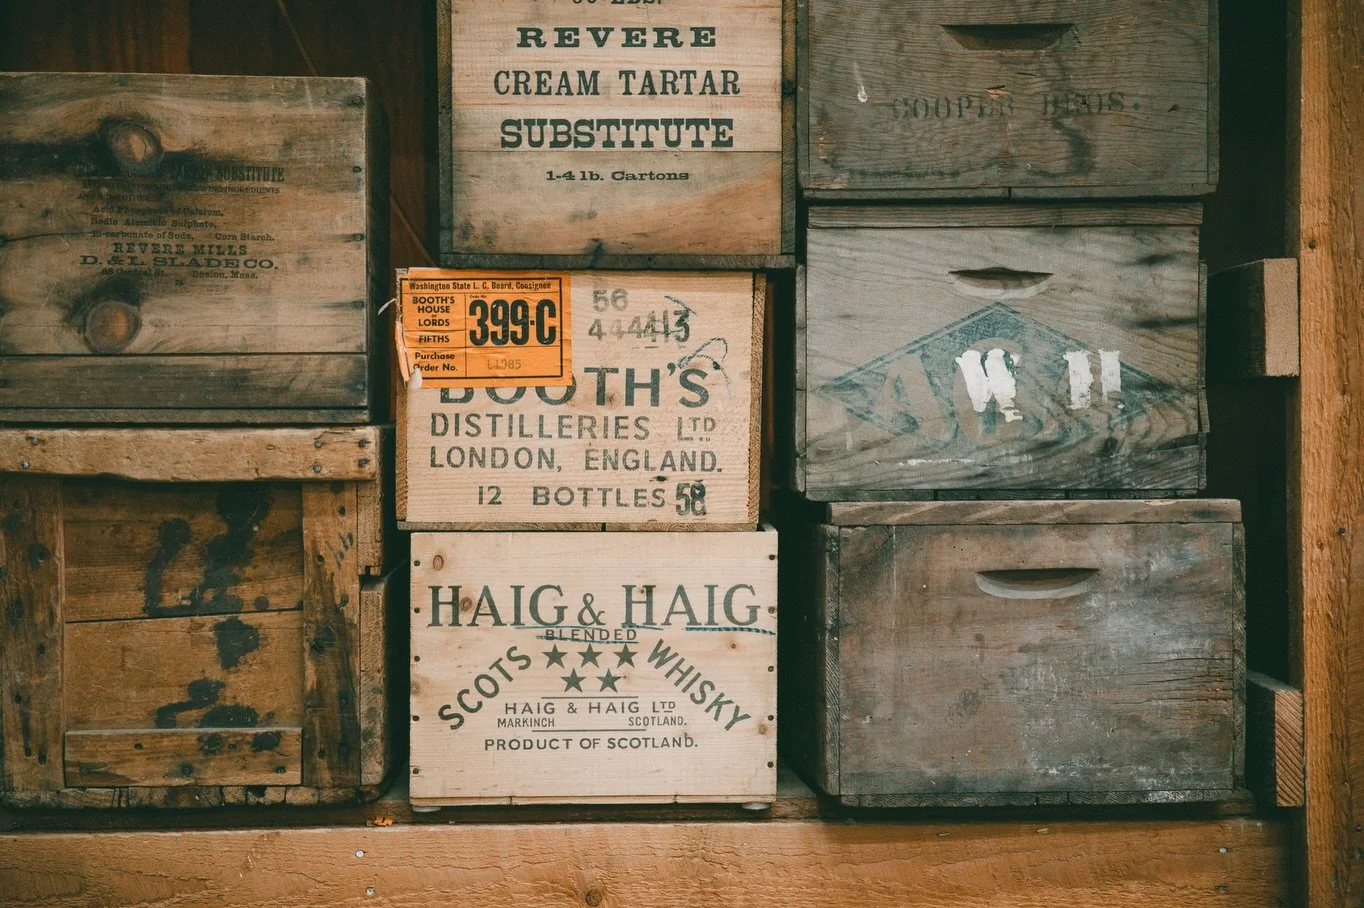 REVERE
CREAM TARTAR
SUBSTITUTE
1-4 lb. Cartons
COOPER BROS.
SUBSTITUTE
INGREDIENTS
Acid Phosphate of Calcium,
Sodia Aluminic Sulphate,
Bi-carbonate of Soda, Corn Starch.
REVERE MILLS
D. & L. SLADE CO.
Central St. Boston, Mass.
Washington State L. C. Board, Consignee
BOOTH'S
HOUSE
OF
LORDS
FIFTHS
Code No.
399-C
Purchase
Order No.
L1985
56
BOOTH'S
DISTILLERIES LTD
LONDON, ENGLAND.
12 BOTTLES 58
W H
HAIG & HAIG
BLENDED
SCOTS WHISKY
HAIG & HAIG LTD
MARKINCH SCOTLAND.
PRODUCT OF SCOTLAND.